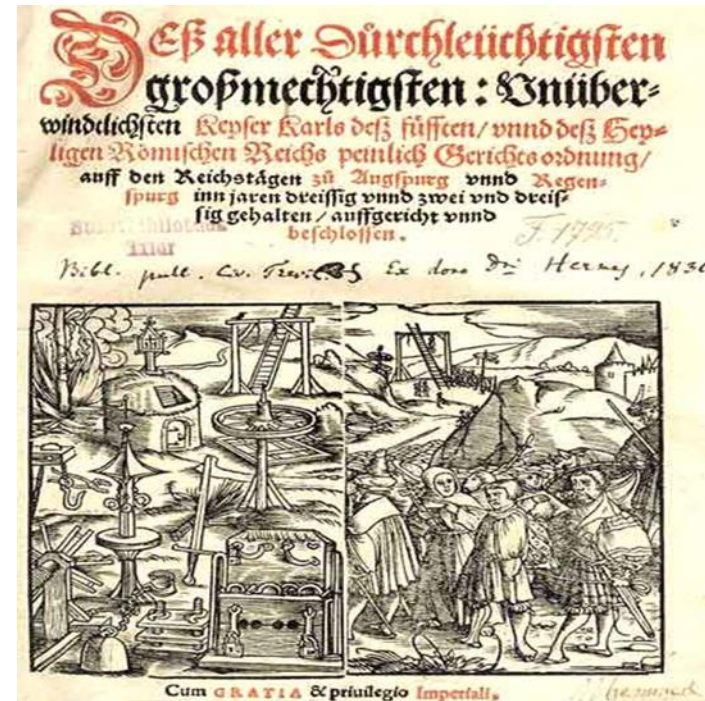 Deß aller Durchleüchtigsten
großmechtigsten: Vnüber-
windtlichsten Keyser Karls deß fünfften/ vnnd deß Hey-
ligen Römischen Reichs peinlich Gerichts ordnung/
auff den Reichstägen zů Augspurg vnnd Regen-
spurg inn jaren dreissig vnnd zwei vnd dreis-
sig gehalten/ auffgericht vnnd
beschlossen.
Stadtbibliothek
Trier
Bibl. publ. Civ. Trevir. Ex dono Dni Hermes, 1830
Cum GRATIA & priuilegio Imperiali.